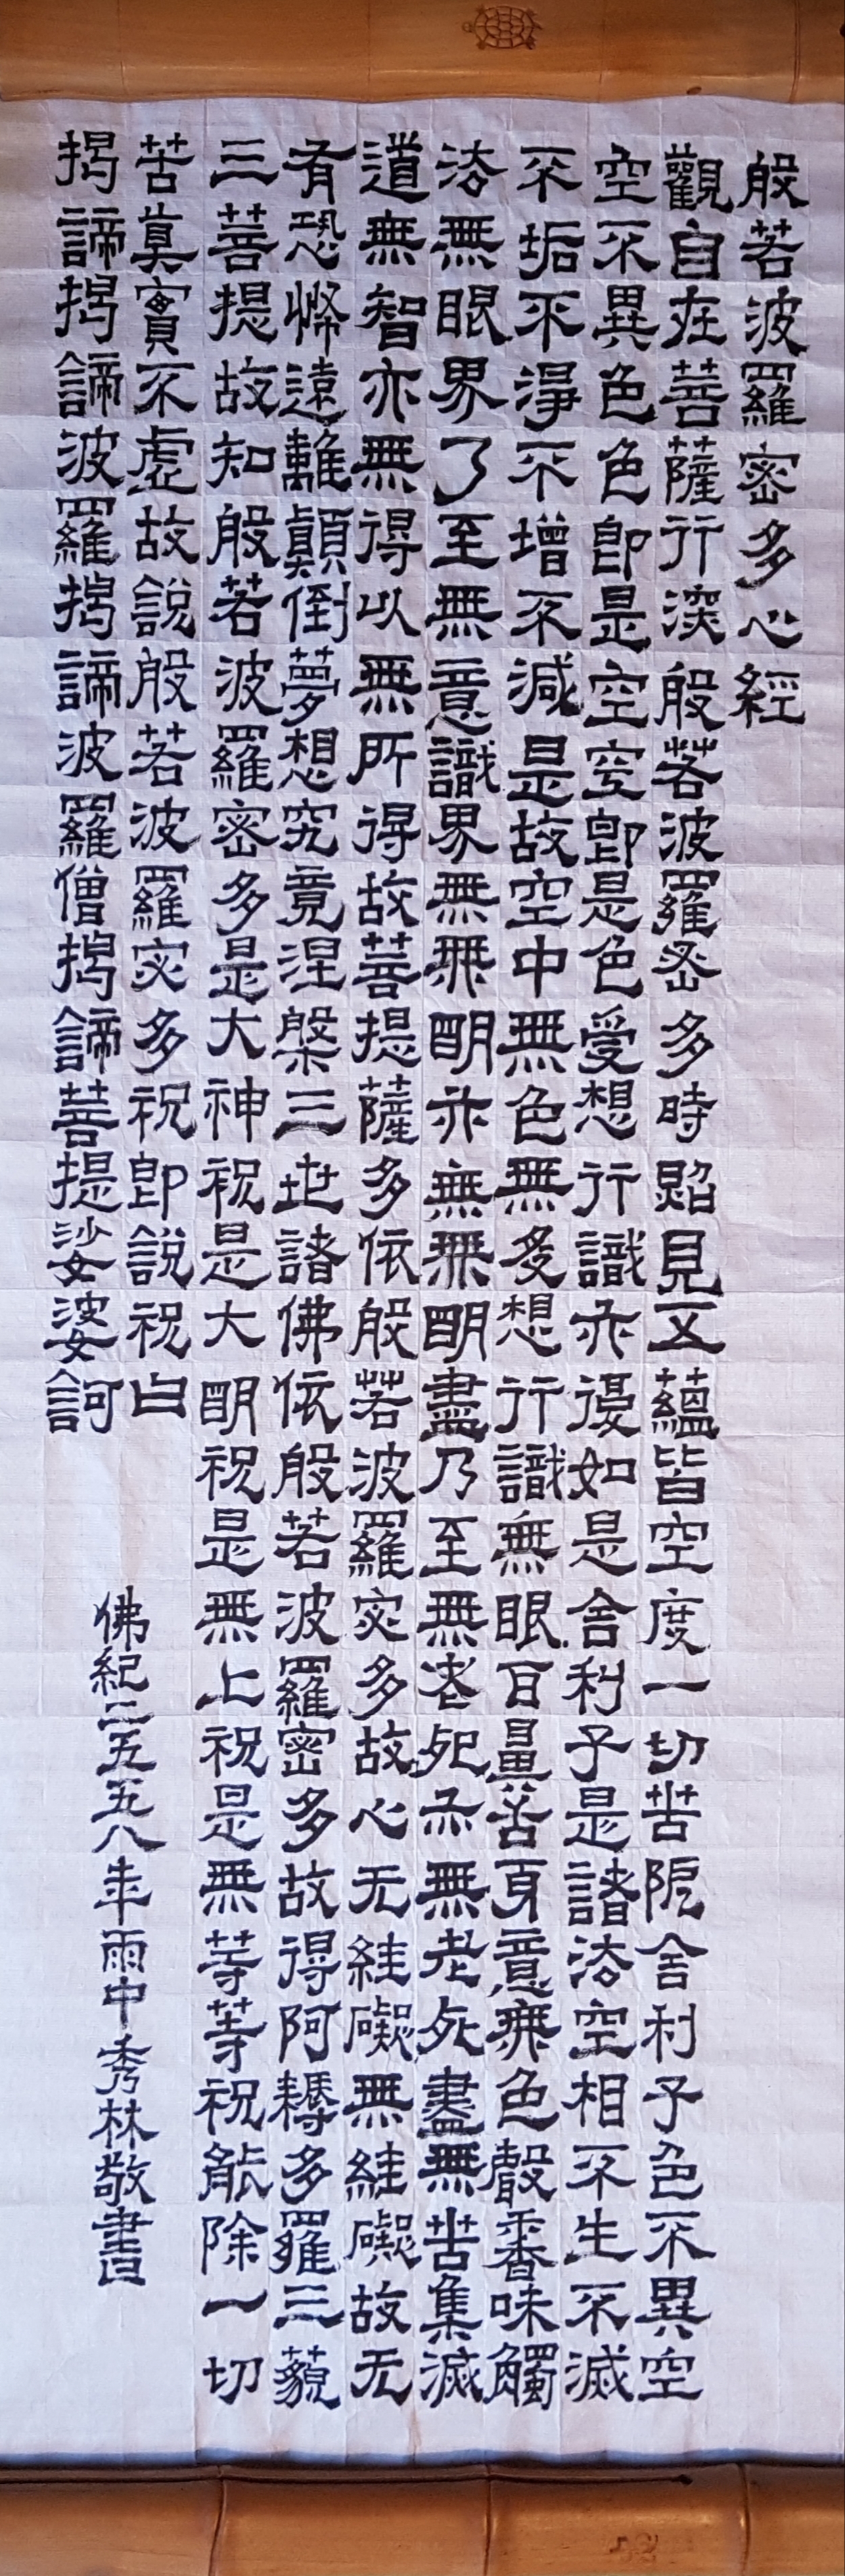 般若波羅密多心經
觀自在菩薩行深般若波羅密多時照見五蘊皆空度一切苦厄舍利子色不異空
空不異色色即是空空即是色受想行識亦復如是舍利子是諸法空相不生不滅
不垢不淨不增不減是故空中無色無受想行識無眼耳鼻舌身意無色聲香味觸
法無眼界乃至無意識界無無明亦無無明盡乃至無老死亦無老死盡無苦集滅
道無智亦無得以無所得故菩提薩多依般若波羅密多故心无絓礙無絓礙故无
有恐怖遠離顛倒夢想究竟涅槃三世諸佛依般若波羅密多故得阿耨多羅三藐
三菩提故知般若波羅密多是大神祝是大明祝是無上祝是無等等祝能除一切
苦真實不虛故說般若波羅密多祝即說祝曰
揭諦揭諦波羅揭諦波羅僧揭諦菩提娑婆訶
佛紀二五五八年雨中秀林敬書